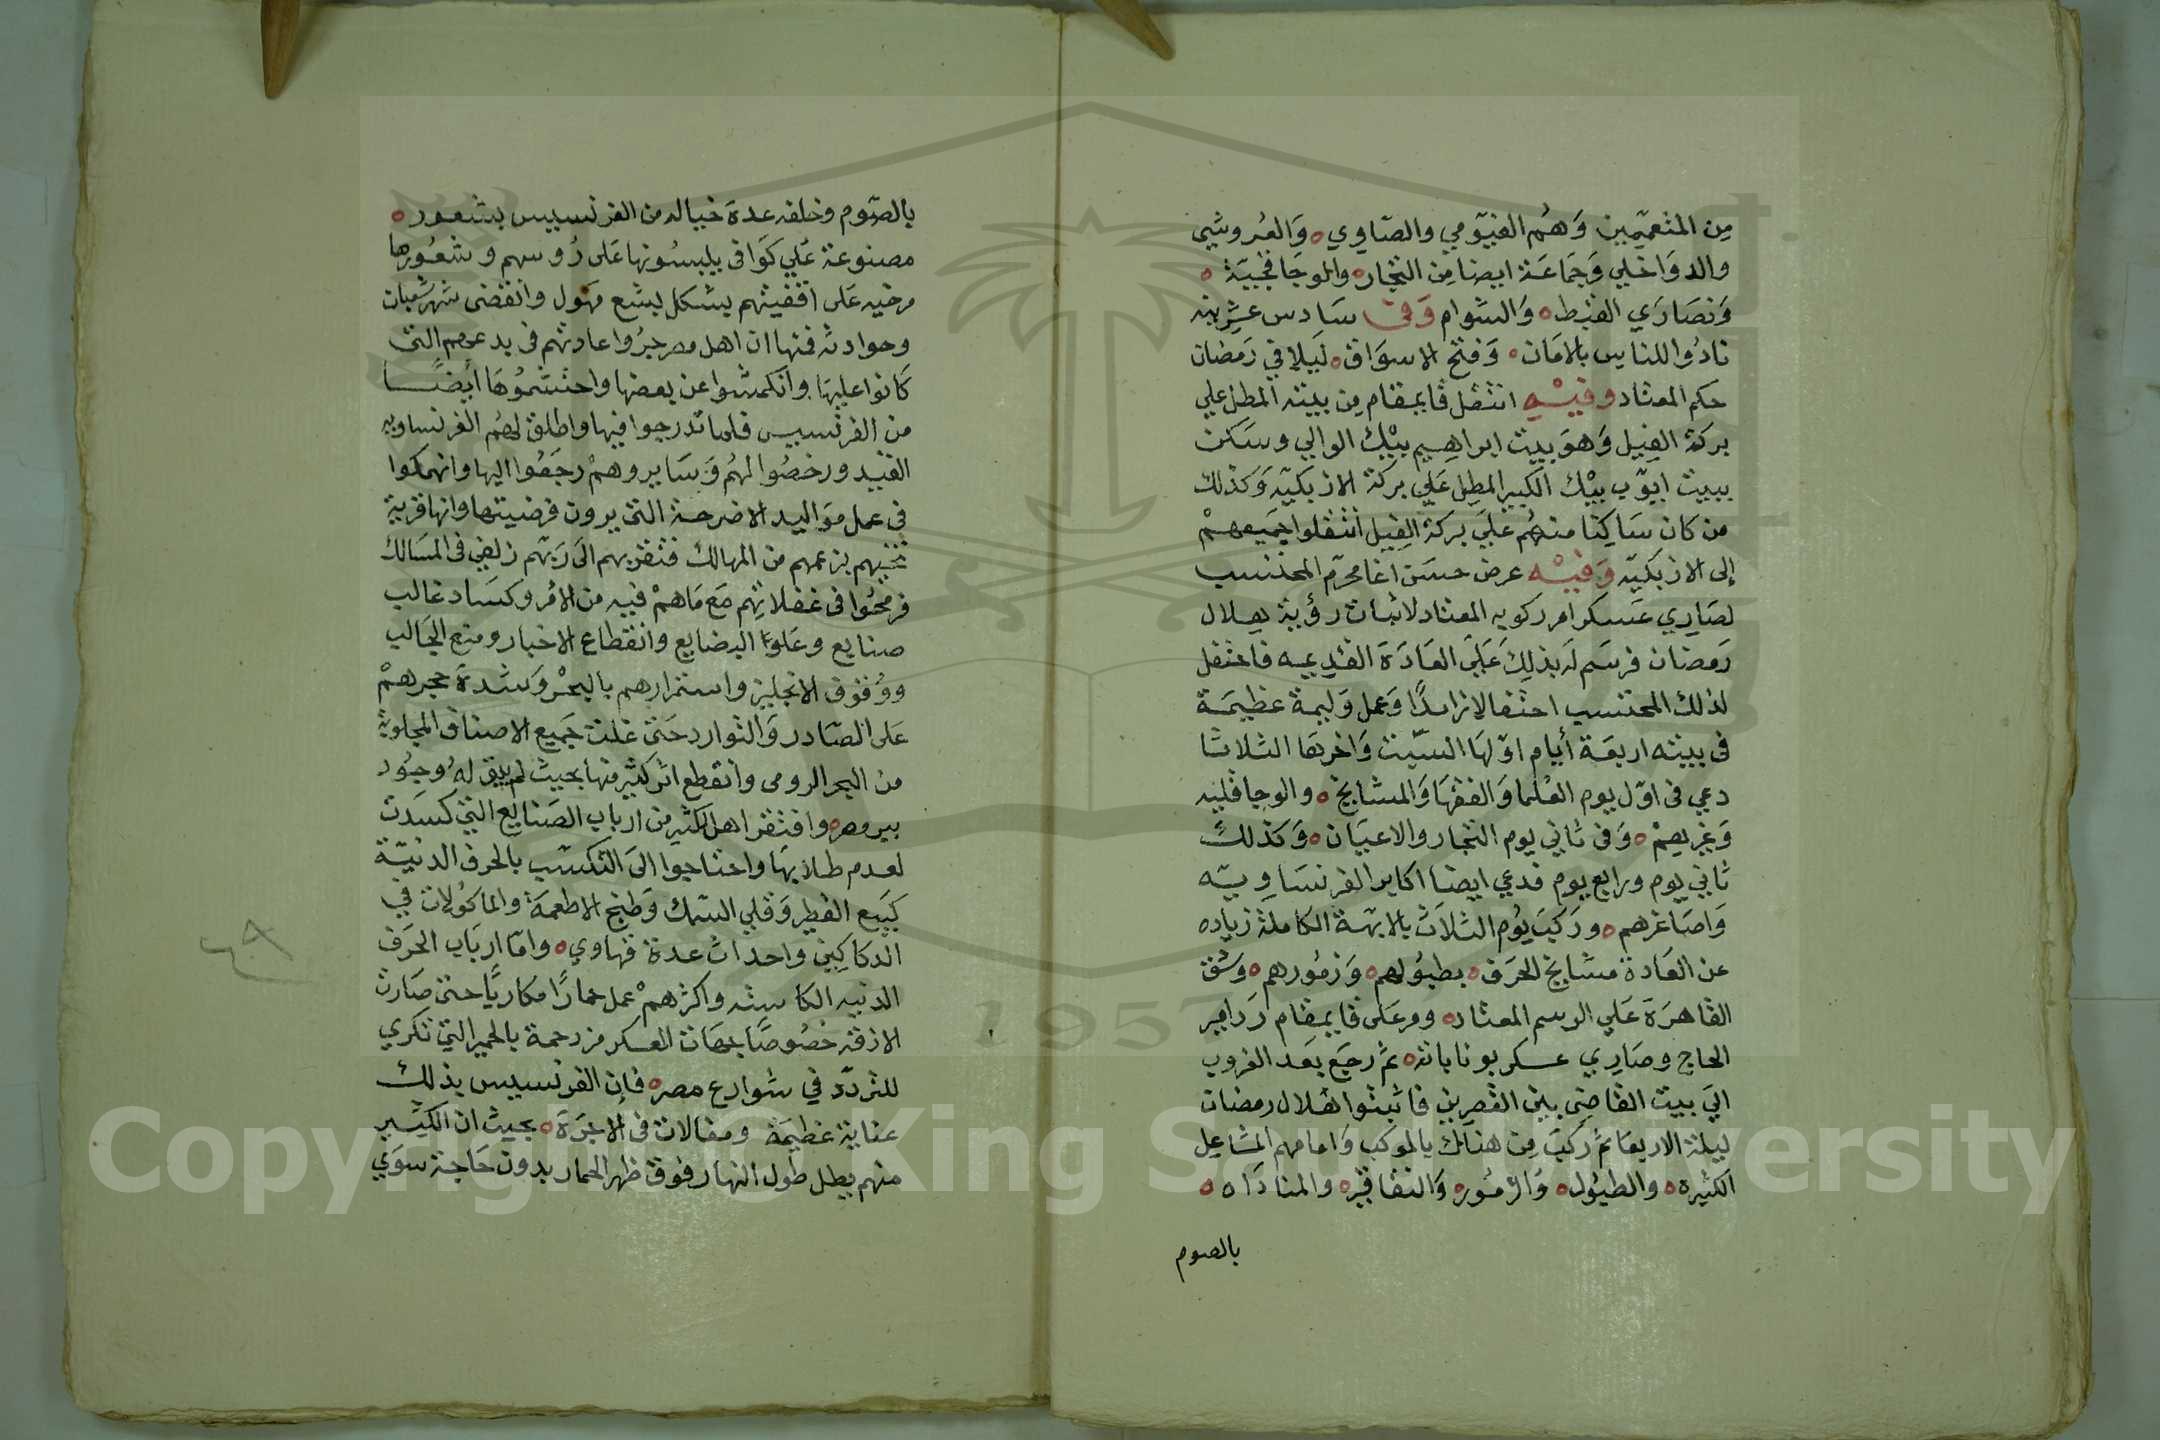 من المتعممين وَهُم الفيّومي والصّاوي ه وَالعُروشي
والدوَاخلي وَجَمَاعَة ايضا من التجار ه والوجَاقجيّة ه
وَنصَارَي القبط ه وَالشوام وَفي سَادس عشرينه
نادُوا للناس بالامَان ه وَفتح الاسوَاق ه لَيلا في رَمضان
حكم المعتاد وفيْه انتقل قايمقام مِن بيته المطل علي
بركة الفِيل وَهوَ بيت ابراهيم بيْك الوالي وسَكن
ببيت ايوّب بيْك الكبير المطِل عَلي بركَة الازبكيّة وَكذلك
من كان سَاكِنا منهُم عَلي بركَة الفِيل انتقلوا جمَيعهمْ
إلى الازبكيّه وَفيْه عرض حسَن اغا محرّم المحتسب
لصَارِي عَسكر امر ركوبه المعتاد لاثبات رؤية هلال
رَمضان فرسَم لَه بذلِك عَلي العَادَة القدِيمه فاحتفل
لذلك المحتسب احتفالا زايدًا وَعمل وَليمة عظيمَة
في بيته اربعَة أيام اوّلهَا السّبت وَاخرهَا الثلاثا
دعي في اوّل يوم العُلما وَالفقهَا وَالمشايخ ه والوجاقليه
وَغيرهمْ ه وَفي ثاني يوم التجار والاعيَان ه وَكذلك
ثاني يوم ورابع يوم فدعي ايضا اكابر الفرنسَاوِيّه
وَاصَاغرهم ه ورَكبَ يوُم الثلاَث بالابّهة الكَاملة زياده
عن العَادة مشايخ الحرَف ه بطبُولهم ه وَزمُورهم ه وشق
القاهرَة عَلي الرسم المعتاد ه ومر عَلى قايمقام وَامير
الحاج وصَارِي عسكر بونابارته ه ثمّ رجَع بعَد الغروب
اليَ بيت القاضِي بيْن القصرين فاثبتوا هلال رمضان
ليلة الاربعَا ثمّ ركبَ مِن هنَاك بالموكب وَامامهم المشاعِل
الكثيره ه والطبُول ه وَالزمُور ه وَالنقاقير ه والمنادَاه ه
بالصوم
بالصّوم وخلفه عدة خياله من الفرنسيس بشعور ه
مصنوعة عَلي كوَافي يلبسُونها عَلى رُوسهم وشعُورها
مرخيه عَلى اقفيتهم بشكل بشع مهَول وانقضى شهر شعبان
وحوادثه فمنها ان اهل مصر جرُوا عادتهم في بدعهم التي
كَانوا عليهَا وانكمشوا عن بعضها واحتشمُوهَا أيضًا
من الفرنسيس فلما تدرجوا فيها واطلق لهُم الفرنساويه
القيد ورخصُوا لهُم وَسَايروهمْ رجَعُوا اليها وانهمكوا
في عمل موَاليد الاضرحة التي يرون فرضيتها وانها قربة
تنجيهم بزعمهم من المهالك فتقربهم الى رَبّهم زلفي في المسَالك
فرمحُوا في غفلاتهم مَع مَاهمْ فيه من الامُر وكسَاد غالب
صنايع وعَلوّ البضايع وانقطاع الاخبار ومنع الجَالب
ووُقوف الانجليز واستمرارهم بالبحْر وَشدة حجرهمْ
عَلى الصَادر وَالوارد حَتى غلت جَميع الاصناف المجلوبة
من البحر الرومي وانقطع اثر كثير منها بحيث لم يبق لهُ وجُود
بيروم ه وافتقر اهل الكثير من ارباب الصَنايع التي كسَدت
لعدم طلابهَا واحتاجوا الىَ التكسّب بالحرف الدنيّة
كبيَع الفطير وَقلي السّمك وَطبخ الاطعمَة والماكوُلات في
الدكاكِين واحداث عدة قهاوي ه وامّا اربَاب الحرَف
الدنيه الكاسده واكثرهمْ عمل حمارًا مكاريًّا حتى صَارت
الازقة خصُوصًا جهَات العسكر مزدحمة بالحمير التي تكري
للتردّد في شوارع مصر ه فإن الفرنسيس بذلك
عناية عظيمَة ومغالات في الاجرَة ه بحيث ان الكثير
منهم يظل طول النهار فوق ظهر الحمار بدون حَاجة سوَي
Copyright © King Saud University
1957